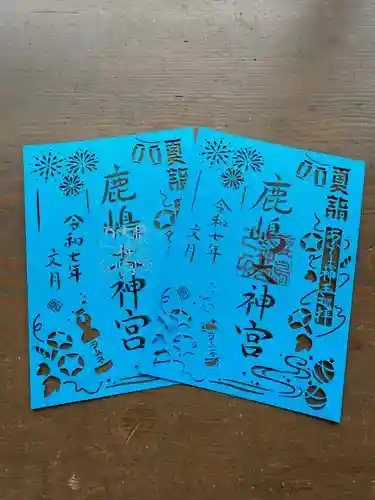 夏詣
鹿嶋大神宮
令和七年
文月
夏詣
鹿嶋大神宮
令和七年
文月